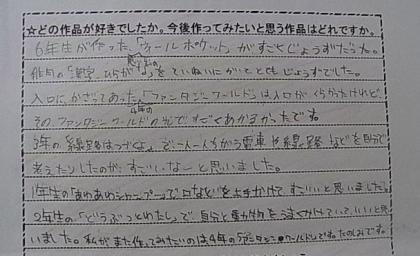 ☆どの作品が好きでしたか。今後作ってみたいと思う作品はどれですか。
6年生が作った、「ウールポケット」がすごくじょうずだった。
「漢字、ひらがな」を、ていねいにかいてとてもじょうずでした。
入口にかざってあった「ファンタジーワールド」は入口がくらかったけれど、
4年の
その、ファンタジーワールドの光ですごくあかるかったです。
3年の「線路はつづくよ」で、一人一人ちがう電車や線路などを自分で
考えたりしたのが、すごいなーと思いました。
1年生の「あわあわシャンプー」で口などを大きくかけて、すごいいと思いました。
2年生の「どうぶつとわたし」で自分と動物をうまくかけていて、いいと思
いました。私がまた作ってみたいのは4年のファンタジーワールドです。たのしみです。